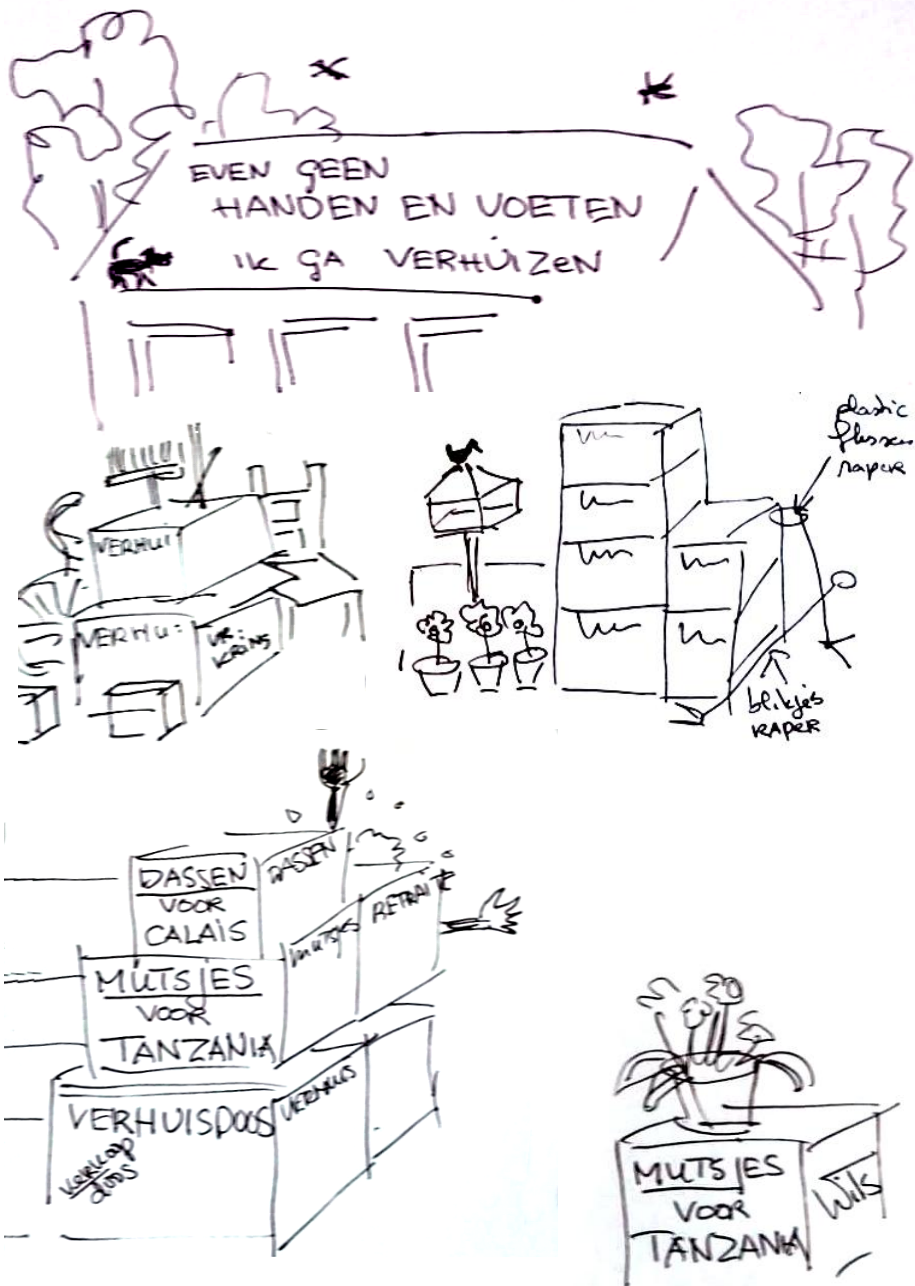 EVEN GEEN
HANDEN EN VOETEN
IK GA VERHUIZEN
VERHUI
VERHU:
plastic
flessen
raper
blikjes
RAPER
DASSEN
VOOR
CALAIS
DASSEN
MUTSJES
VOOR
TANZANIA
MUTSJES
RETRAITE
VERHUISDOOS
VERHUIS
verkoop
doos
MUTSJES
VOOR
TANZANIA
Wils